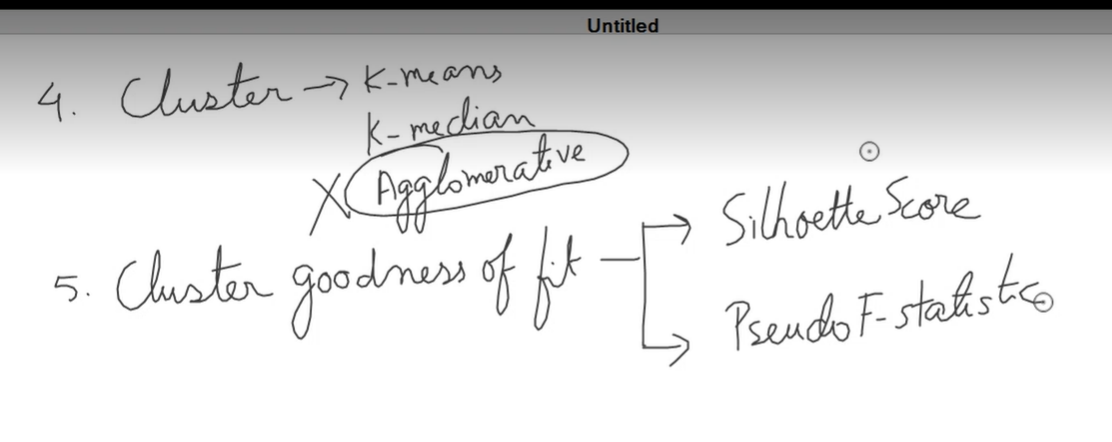 Untitled
4. Cluster → K-means
K-median
X Agglomerative
5. Cluster goodness of fit → Silhoette Score
→ Pseudo F-statistic